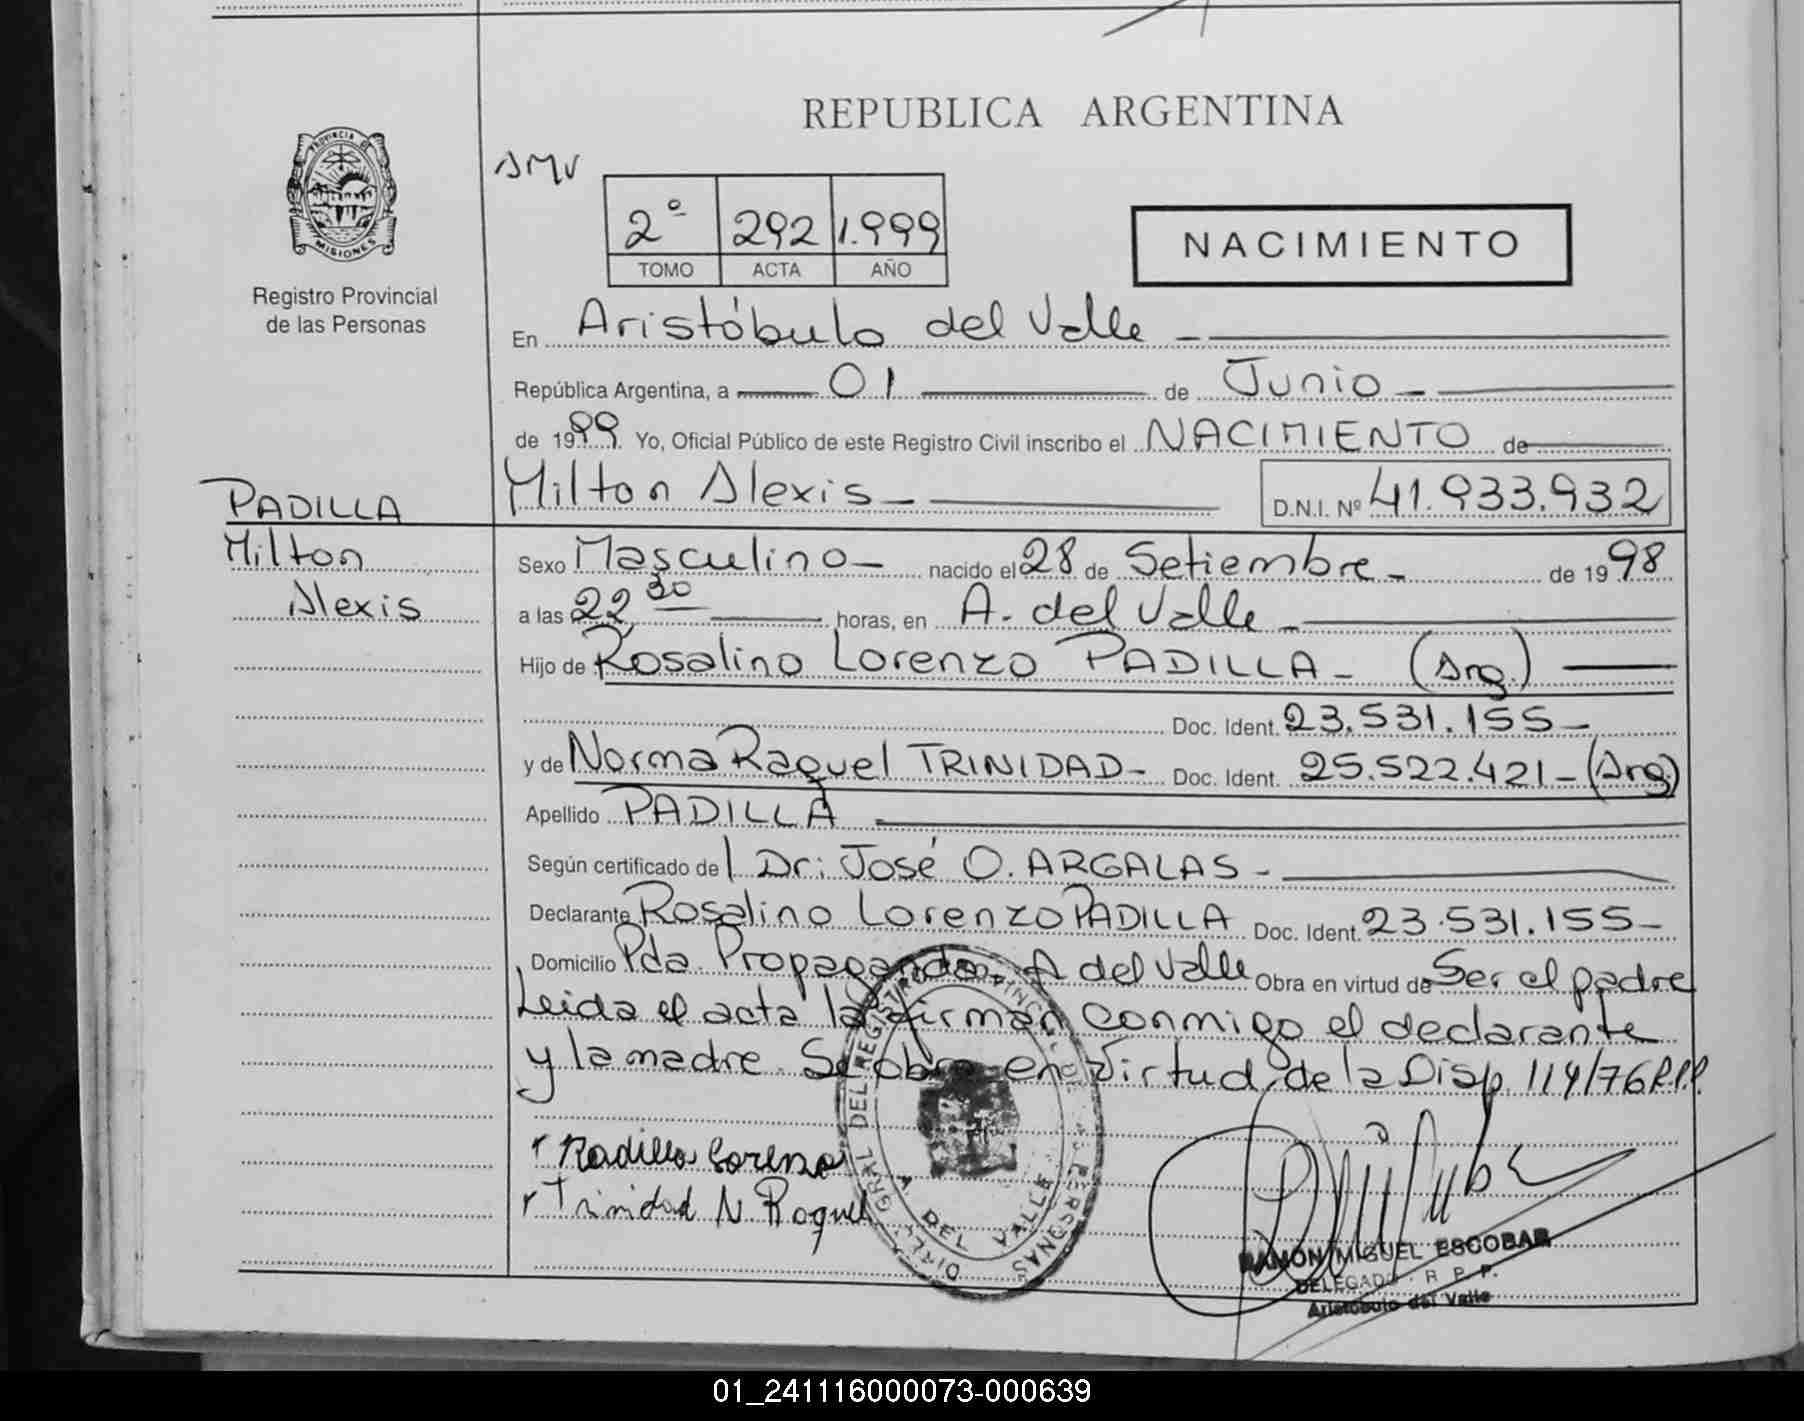 REPUBLICA ARGENTINA
PROVINCIA DE
MISIONES
Registro Provincial
de las Personas
2º 292 1.999
TOMO ACTA AÑO
NACIMIENTO
En Aristóbulo del Valle -
República Argentina, a 01 de Junio -
de 1999. Yo, Oficial Público de este Registro Civil inscribo el NACIMIENTO de
Milton Alexis - D.N.I. Nº 41.933.932
PADILLA
Milton
Alexis
Sexo Masculino - nacido el 28 de Setiembre - de 1998
a las 22,30 horas, en A. del Valle -
Hijo de Rosalino Lorenzo PADILLA - (Arg.)
Doc. Ident. 23.531.155 -
y de Norma Raquel TRINIDAD - Doc. Ident. 25.522.421 - (Arg)
Apellido PADILLA
Según certificado del Dr: José O. ARGALAS -
Declarante Rosalino Lorenzo PADILLA Doc. Ident. 23.531.155 -
Domicilio Pda Propaganda - A del Valle Obra en virtud de Ser el padre
Leida el acta la firman conmigo el declarante
y la madre. Se obra en Virtud de la Disp. 114/76 R.P.P.
Padilla Lorenzo
Trinidad N. Raquel
A DEL VALLE
RAMON MIGUEL ESCOBAR
DELEGADO R. P. P.
Aristobulo del Valle
01_241116000073-000639